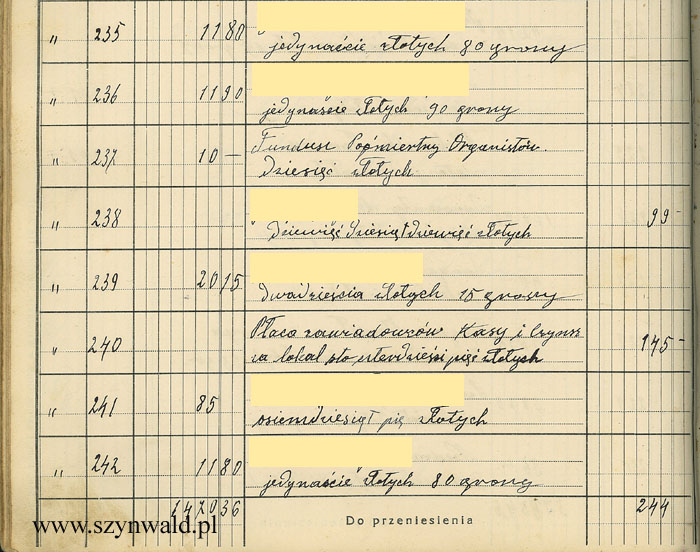 " 235 11 80
" jedynaście złotych 80 groszy
" 236 11 90
jedynaście złotych 90 groszy
" 237 10 — Fundusz Pośmiertny Organistów.
dziesięć złotych
" 238 99 -
" dziewięćdziesiąt dziewięć złotych
" 239 20 15
dwadzieścia złotych 15 groszy
" 240 Płaca zawiadowców Kasy i Czynsz 145 -
za lokal sto czterdzieści pięć złotych
" 241 85
osiemdziesiąt pię złotych
" 242 11 80
jedynaście" złotych 80 groszy
1470 36 Do przeniesienia 244
www.szynwald.pl